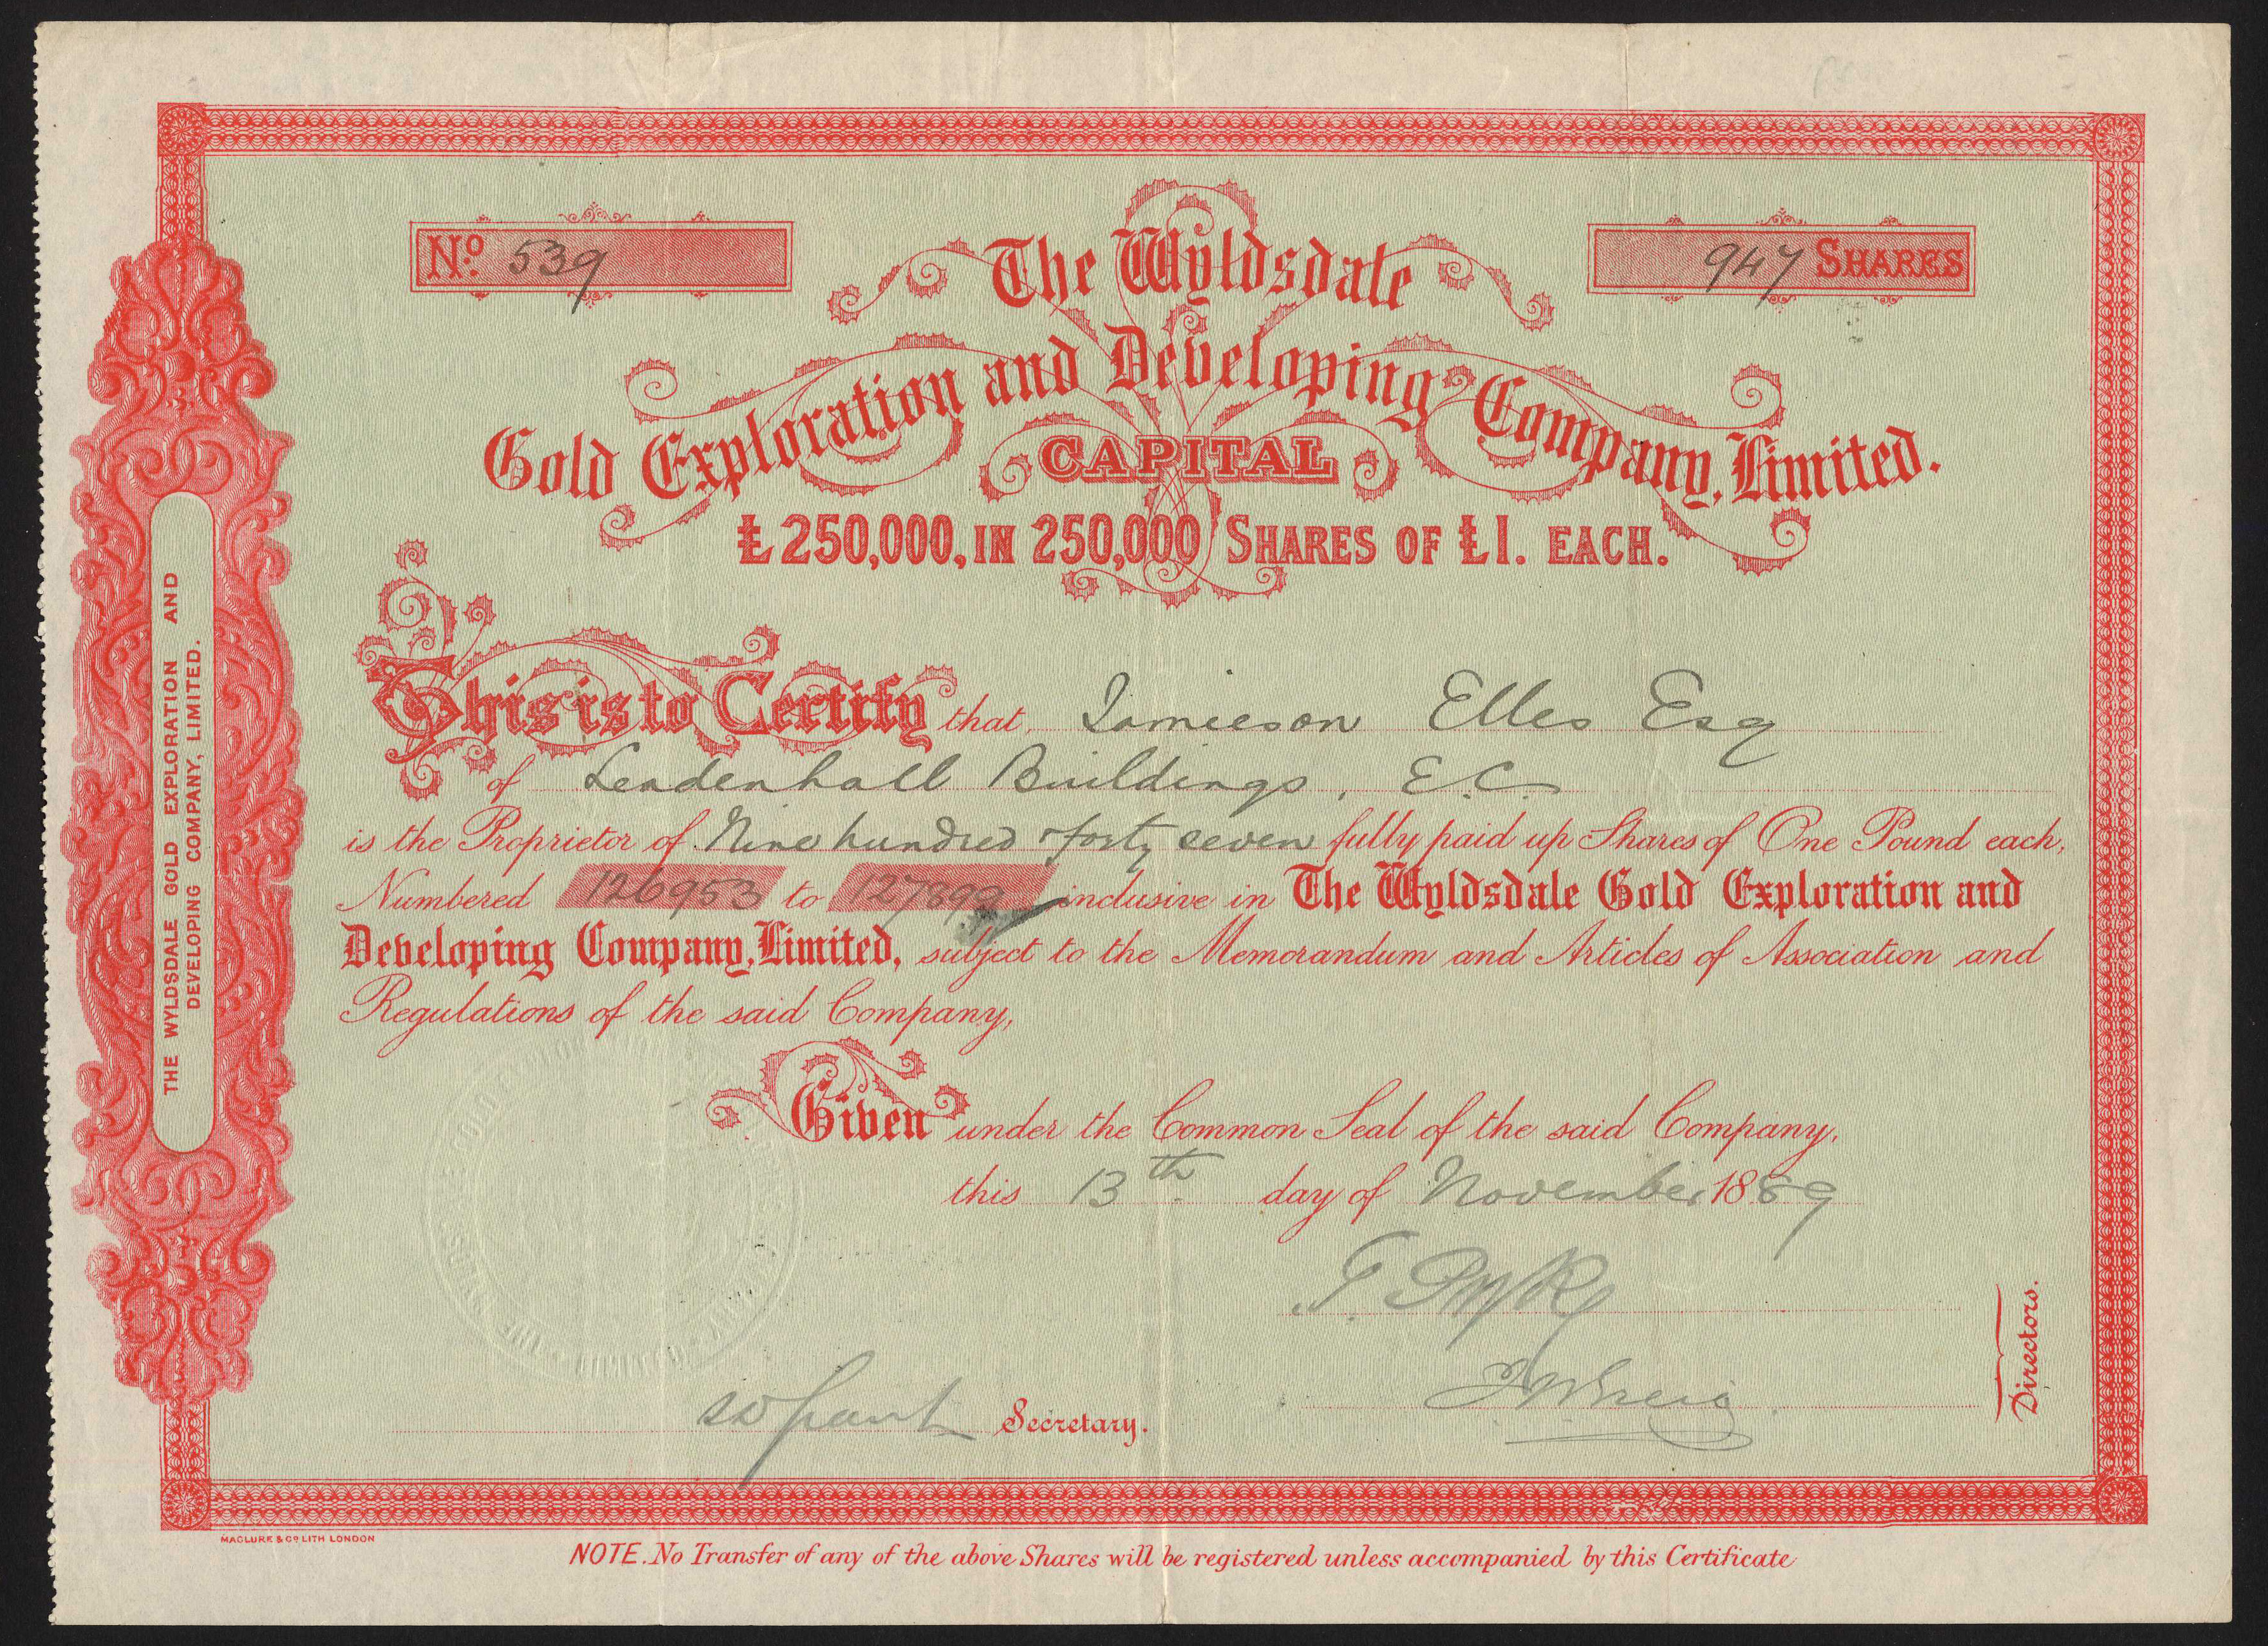 No. 539
947 SHARES
The Wyldsdale
Gold Exploration and Developing Company, Limited.
CAPITAL
£250,000, IN 250,000 SHARES OF £1. EACH.
This is to Certify that Jamieson Elles Esq
of Leadenhall Buildings, E.C.
is the Proprietor of Nine hundred & forty seven fully paid up Shares of One Pound each,
Numbered 126953 to 127899 inclusive in The Wyldsdale Gold Exploration and
Developing Company, Limited, subject to the Memorandum and Articles of Association and
Regulations of the said Company,
Given under the Common Seal of the said Company,
this 13th day of November 1889
Directors.
Secretary.
THE WYLDSDALE GOLD EXPLORATION AND
DEVELOPING COMPANY, LIMITED.
MACLURE & CO LITH LONDON
NOTE. No Transfer of any of the above Shares will be registered unless accompanied by this Certificate